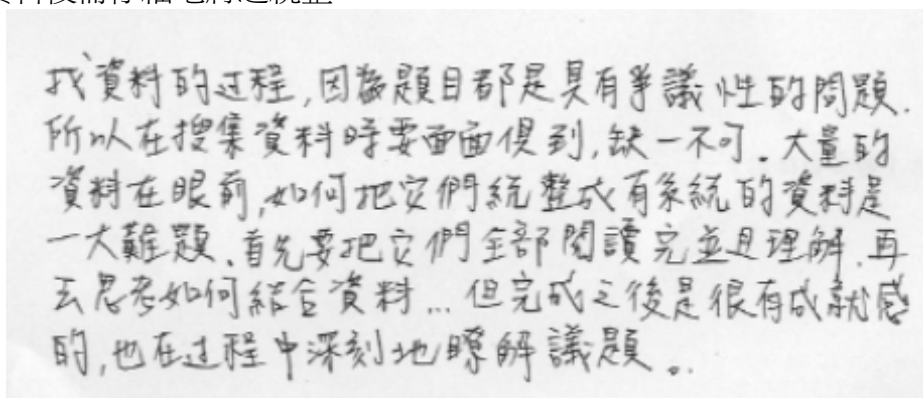 找資料的过程,因為題目都是具有爭議性的問題.
所以在搜集資料時要面面俱到,缺一不可。大量的
資料在眼前,如何把它們統整成有系統的資料是
一大難題、首先要把它們全部閱讀完並且理解.再
去思考如何結合資料...但完成之後是很有成就感
的,也在过程中深刻地瞭解議題。